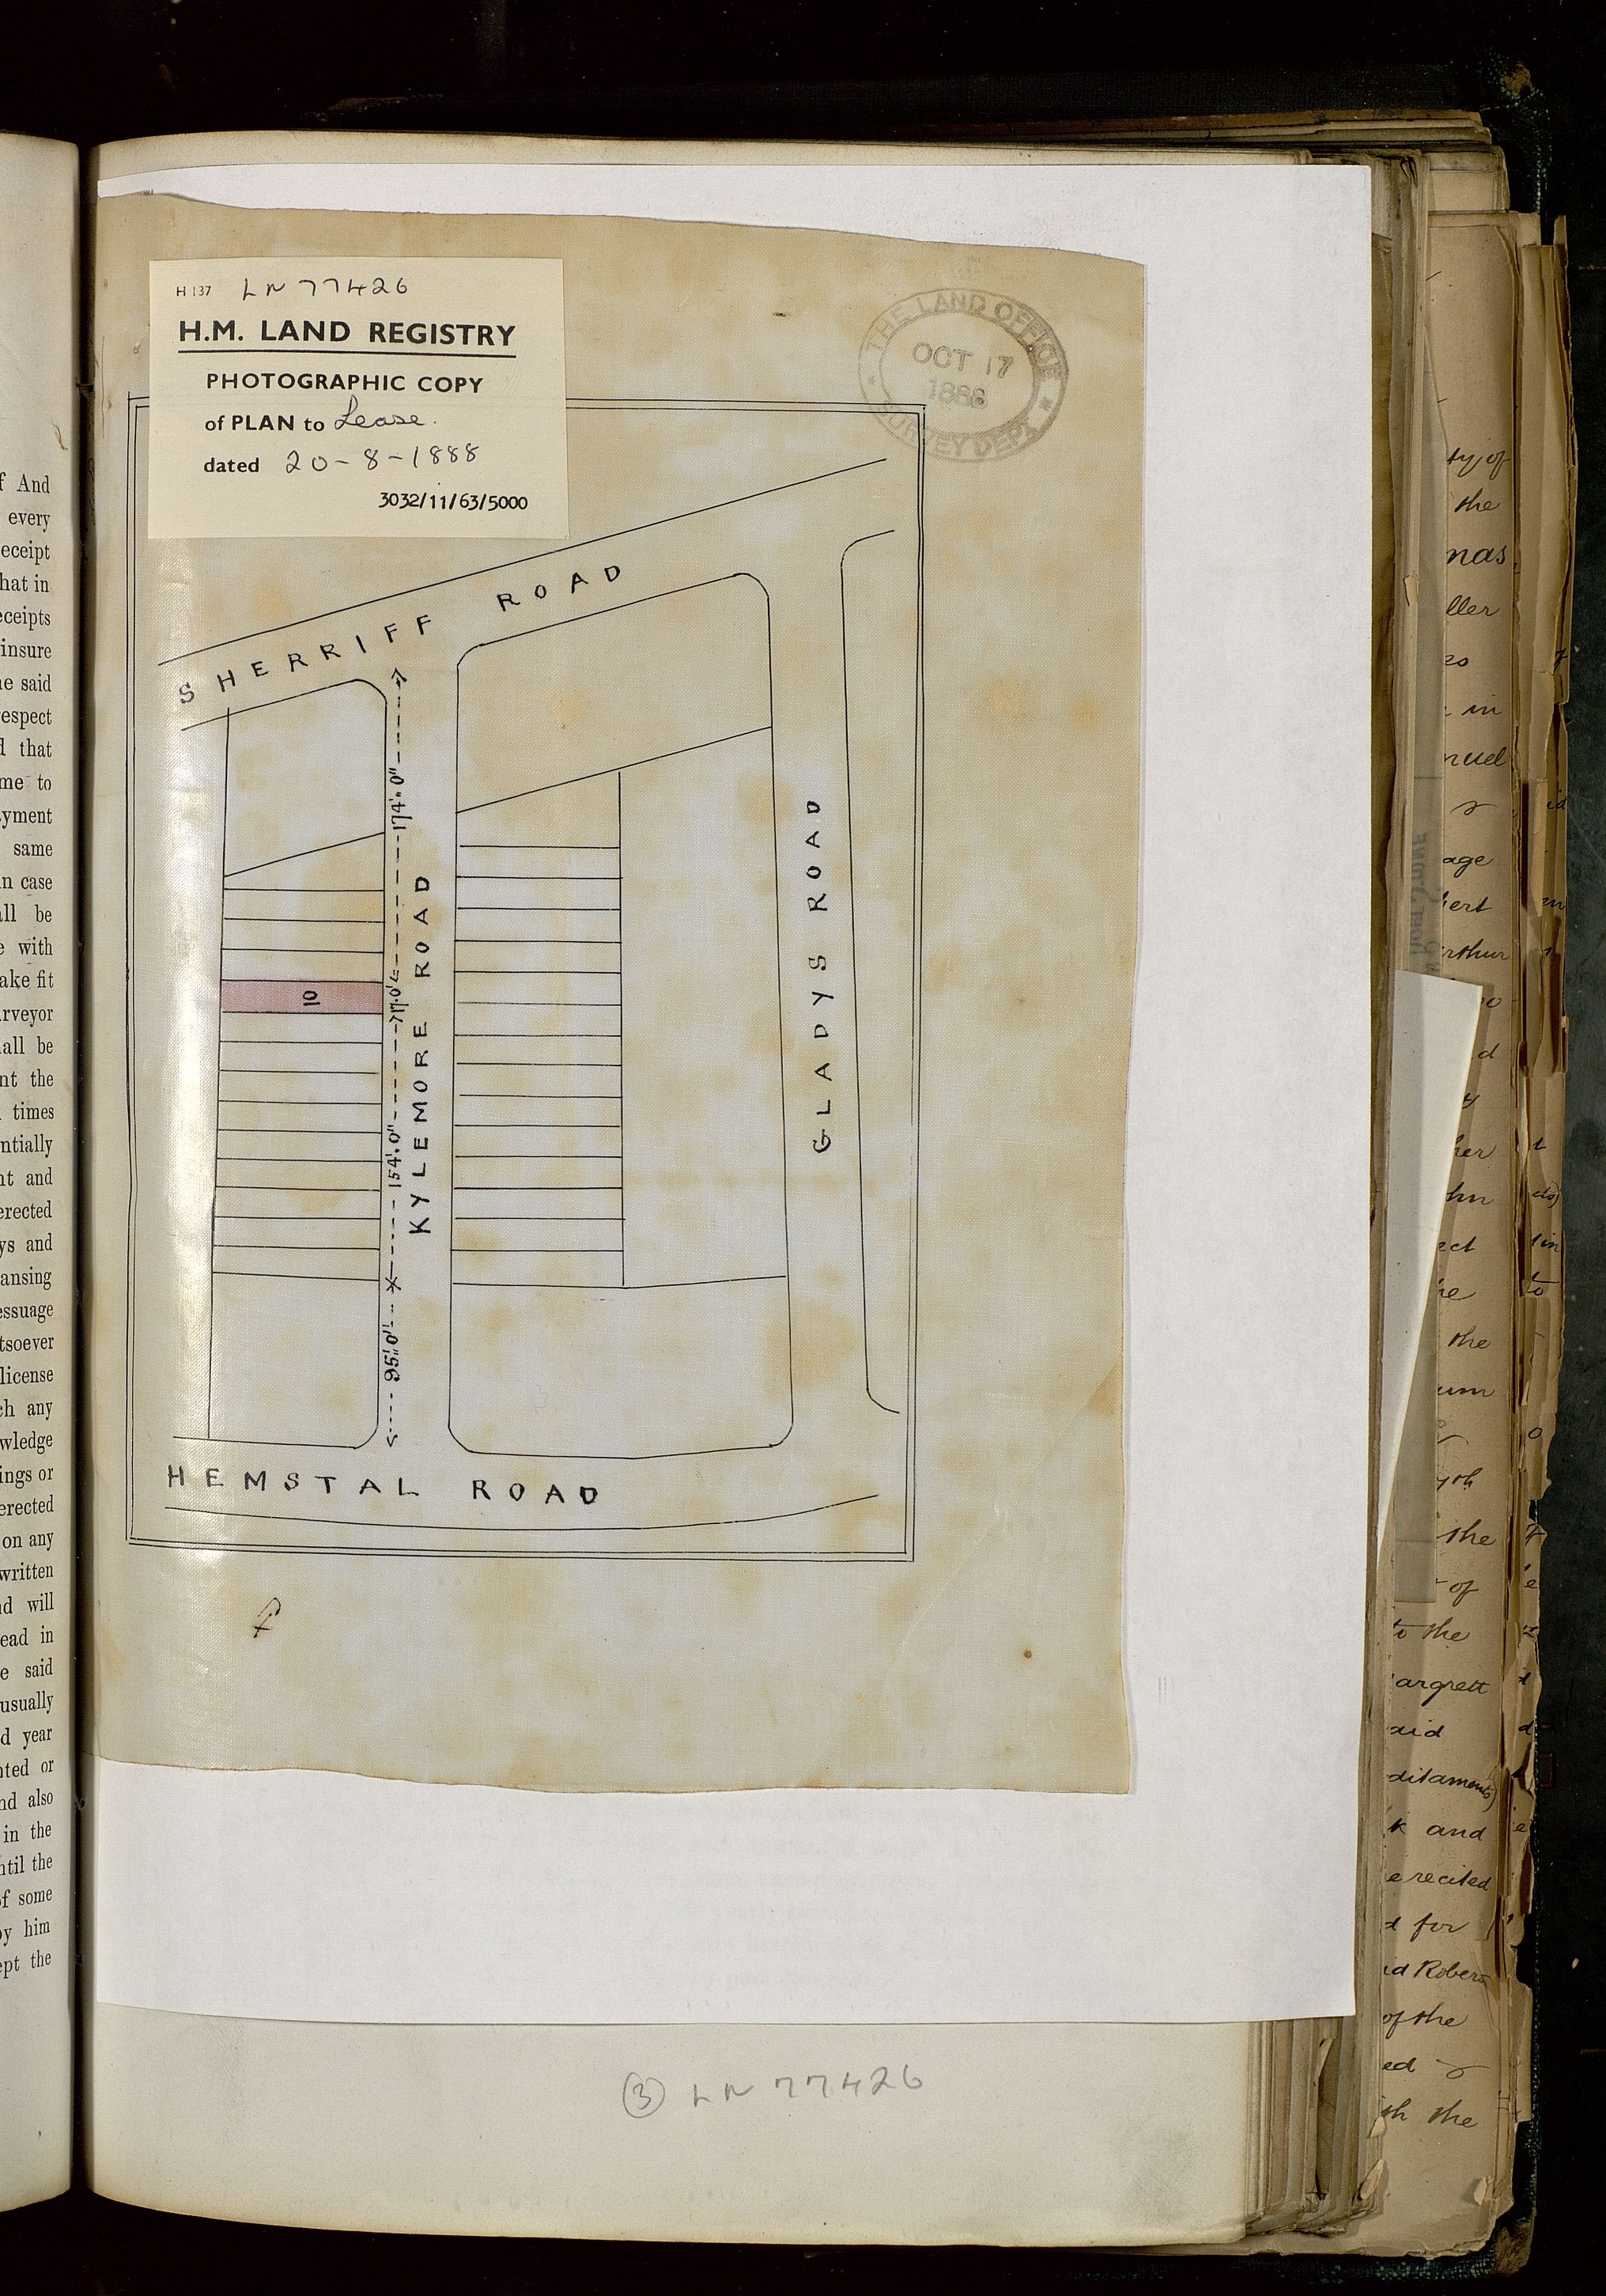 H 137 LN 77426
H.M. LAND REGISTRY
PHOTOGRAPHIC COPY
of PLAN to Lease.
dated 20-8-1888
3032/11/63/5000
THE LAND OFFICE
OCT 17
1888
SURVEY DEPT
SHERRIFF ROAD
174'.0"
KYLEMORE ROAD
10
17'.0"
154'.0"
95'.0"
GLADYS ROAD
HEMSTAL ROAD
3 LN 77426
f And
every
eceipt
hat in
eceipts
insure
e said
espect
d that
me to
yment
same
n case
all be
e with
ake fit
rveyor
all be
nt the
times
ntially
nt and
erected
ys and
ansing
essuage
tsoever
license
ch any
wledge
ings or
erected
on any
written
nd will
ead in
e said
usually
d year
nted or
nd also
in the
ntil the
of some
by him
ept the
ty of
the
mas
ller
in
muel
age
bert
rthur
d
her
hn
ect
the
um
the
of
to the
argrett
aid
ditaments)
k and
e recited
d for
id Robert
of the
ed
th the